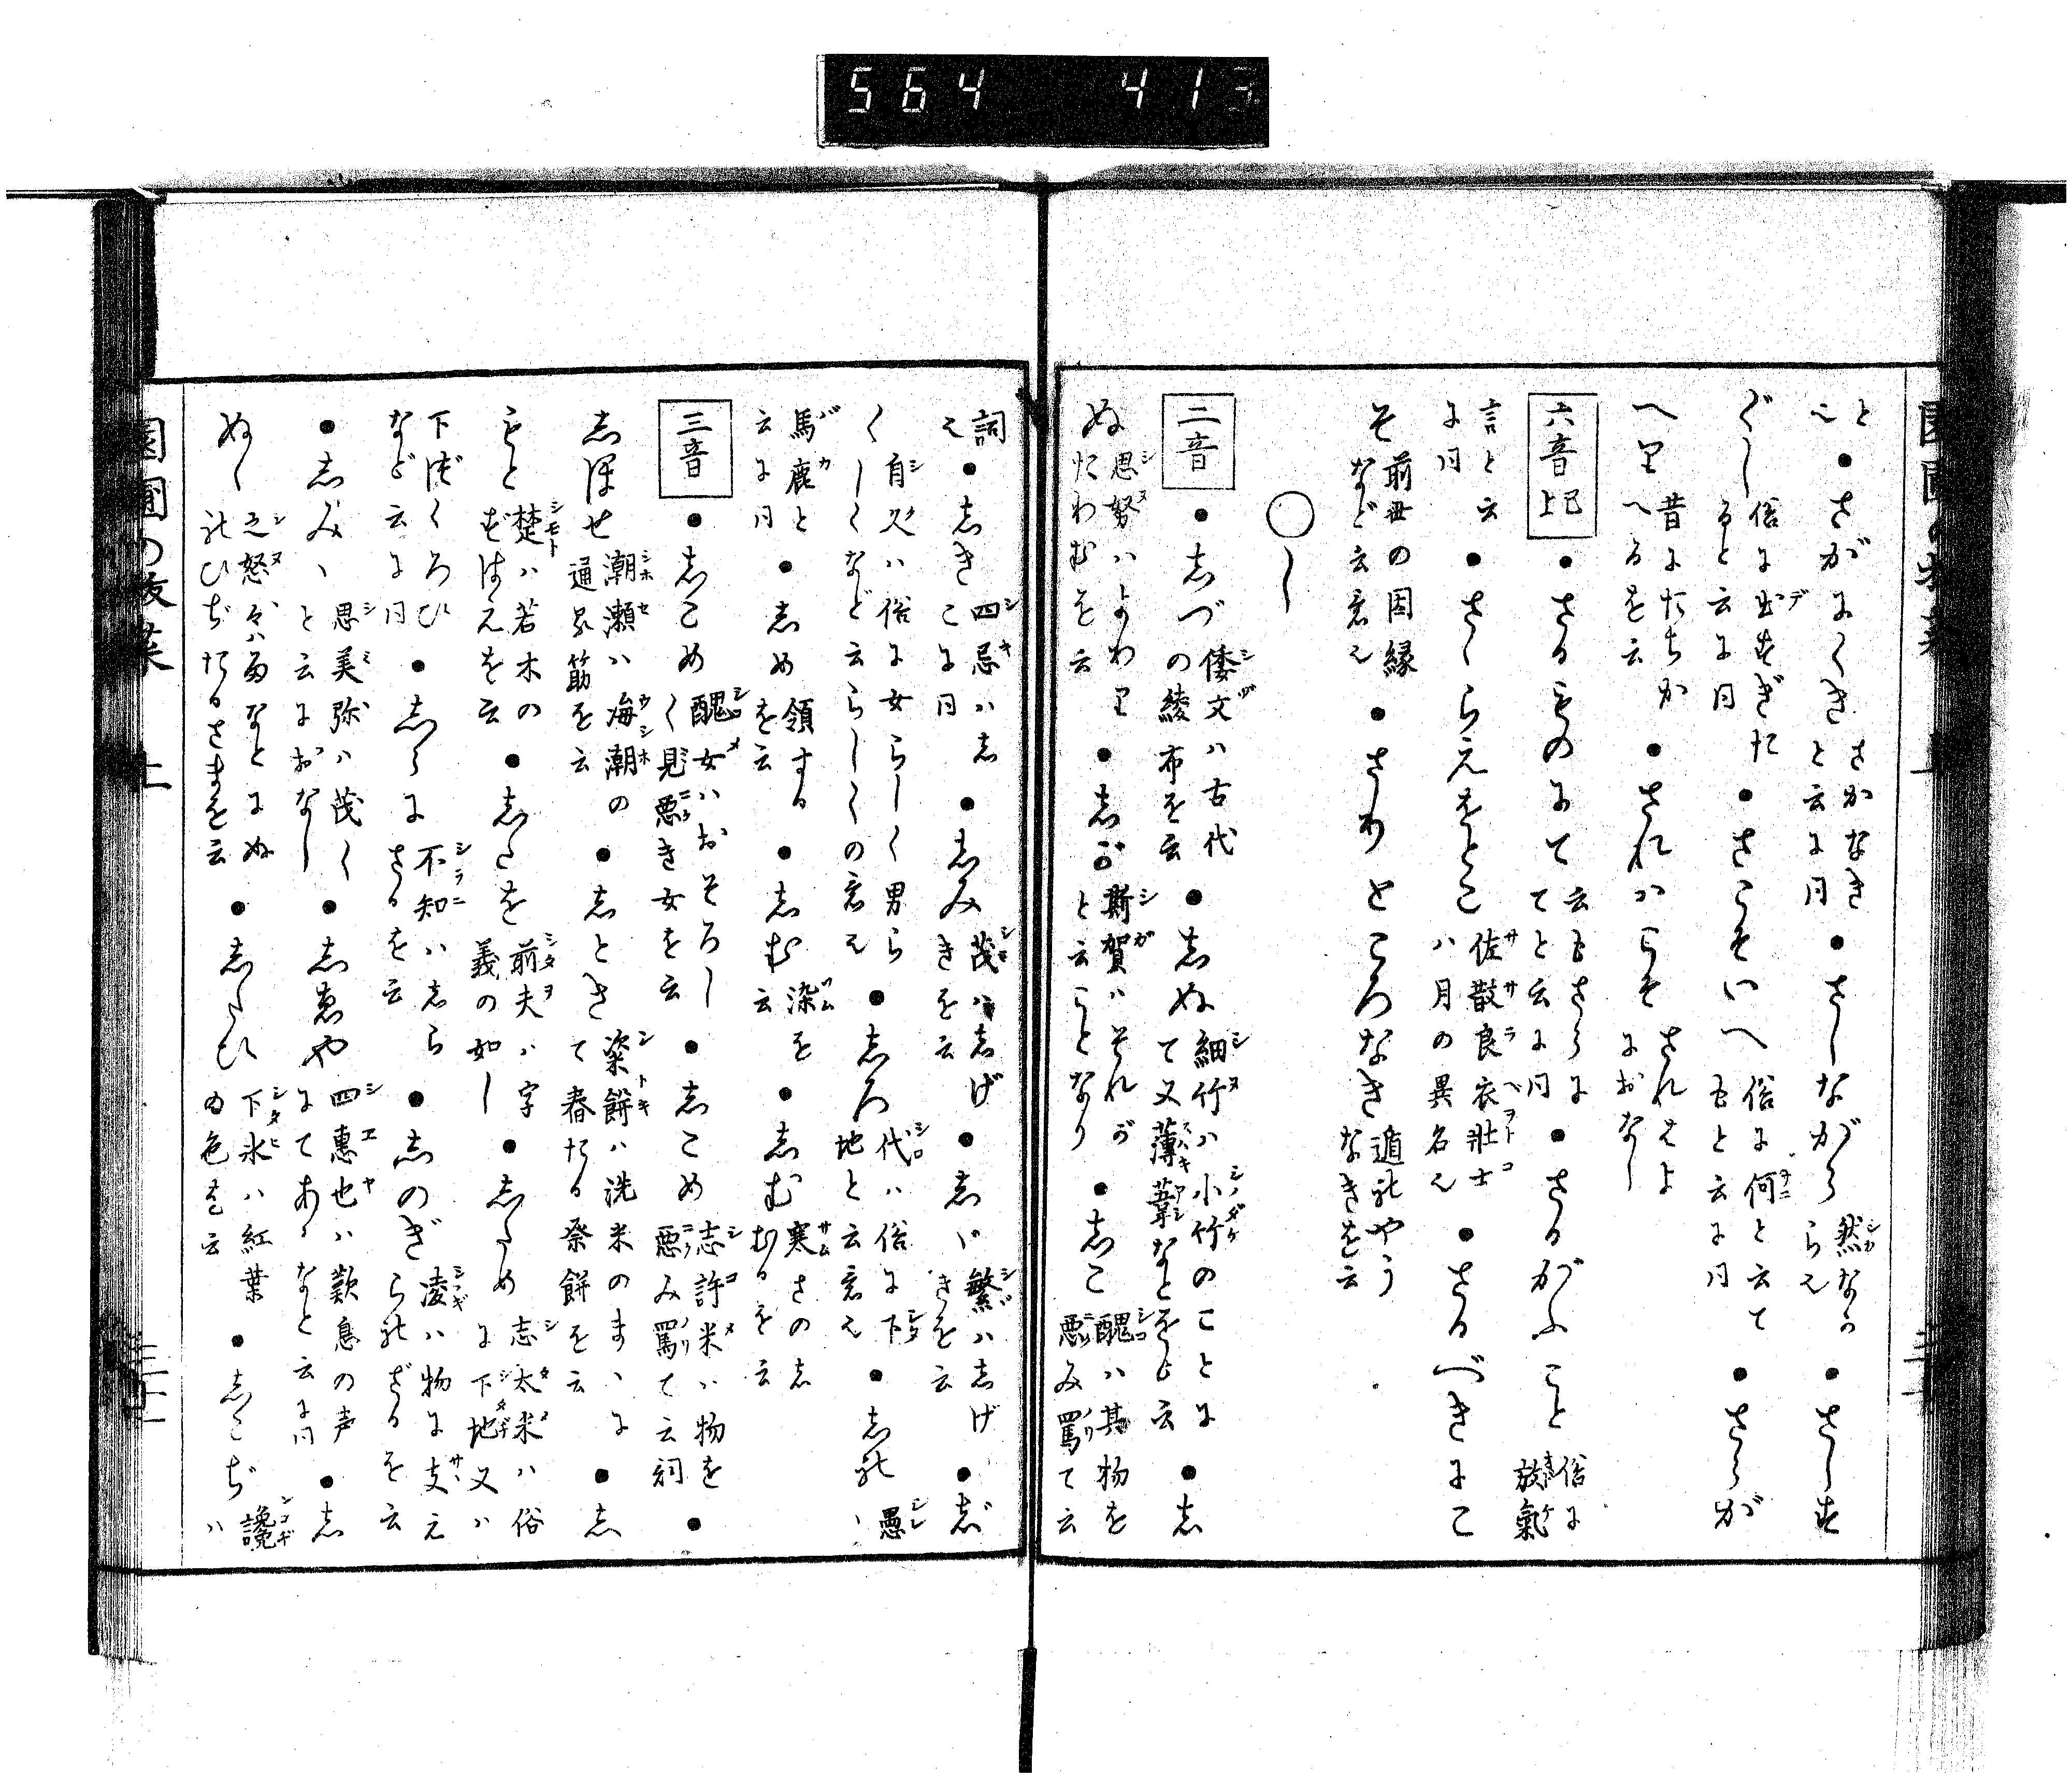 564 413
と
之 ●さがにくき さかなき
と云に同 ●さしながら 然なか
らえ ●さしす
ぐし 俗に出すぎた
ると云に同 ●さこそいへ 俗に何と云て
もと云に同 ●さらが
へり 昔にたちか
へるを云 ●されかこそ されはよ
におなし
六音已上 ●さるものにて 云もさらに
てと云に同 ●さるがふこと 俗に
放氣
言と云
に同 ●さゝらえをとこ 佐散良衣壮士
ハ月の異名之 ●さるべきにこ
そ 前世の因縁
など云意之 ●さりところなき 遁れやう
なきを云
○し
二音 ●しづ 倭文ハ古代
の綾布を云 ●しぬ 細竹ハ小竹のことに
て又薄葦なとをも云 ●し
ぬ 思努ハよわり
たわむを云 ●しが 斯賀ハそれが
と云ことなり ●しこ 醜ハ其物を
悪み罵て云
詞
之 ●しき 四忌ハし
こに同 ●しみ 茂ハしげ
きを云 ●しゞ 繁ハしげ
きを云 ●じ
く 自久ハ俗に女らしく男ら
しくなど云らしくの意之 ●しろ 代ハ俗に下
地と云意之 ●しれ 愚ハ
馬鹿と
云に同 ●しめ 領する
を云 ●しむ 染を
云 ●しむ 寒さのし
むるを云
三音 ●しこめ 醜女ハおそろし
く見悪き女を云 ●しこめ 志許米ハ物を
悪み罵て云詞 ●
しほせ 潮瀬ハ海潮の
通る筋を云 ●しとき 粢餅ハ洗米のまゝに
て舂たる祭餅を云 ●し
もと 楚ハ若木の
ずはえを云 ●したを 前夫ハ字
義の如し ●しため 志太米ハ俗
に下地又ハ
下づくろひ
など云に同 ●しらに 不知ハしら
ざるを云 ●しのぎ 凌ハ物に支え
られざるを云
●しみゝ 思美弥ハ茂く
と云におなし ●しゑや 四惠也ハ歎息の声
にてあゝなと云に同 ●し
ぬゝ 之怒々ハ雨なとにぬ
れひぢたるさまを云 ●したひ 下氷ハ紅葉
の色を云 ●しこぢ 讒ハ